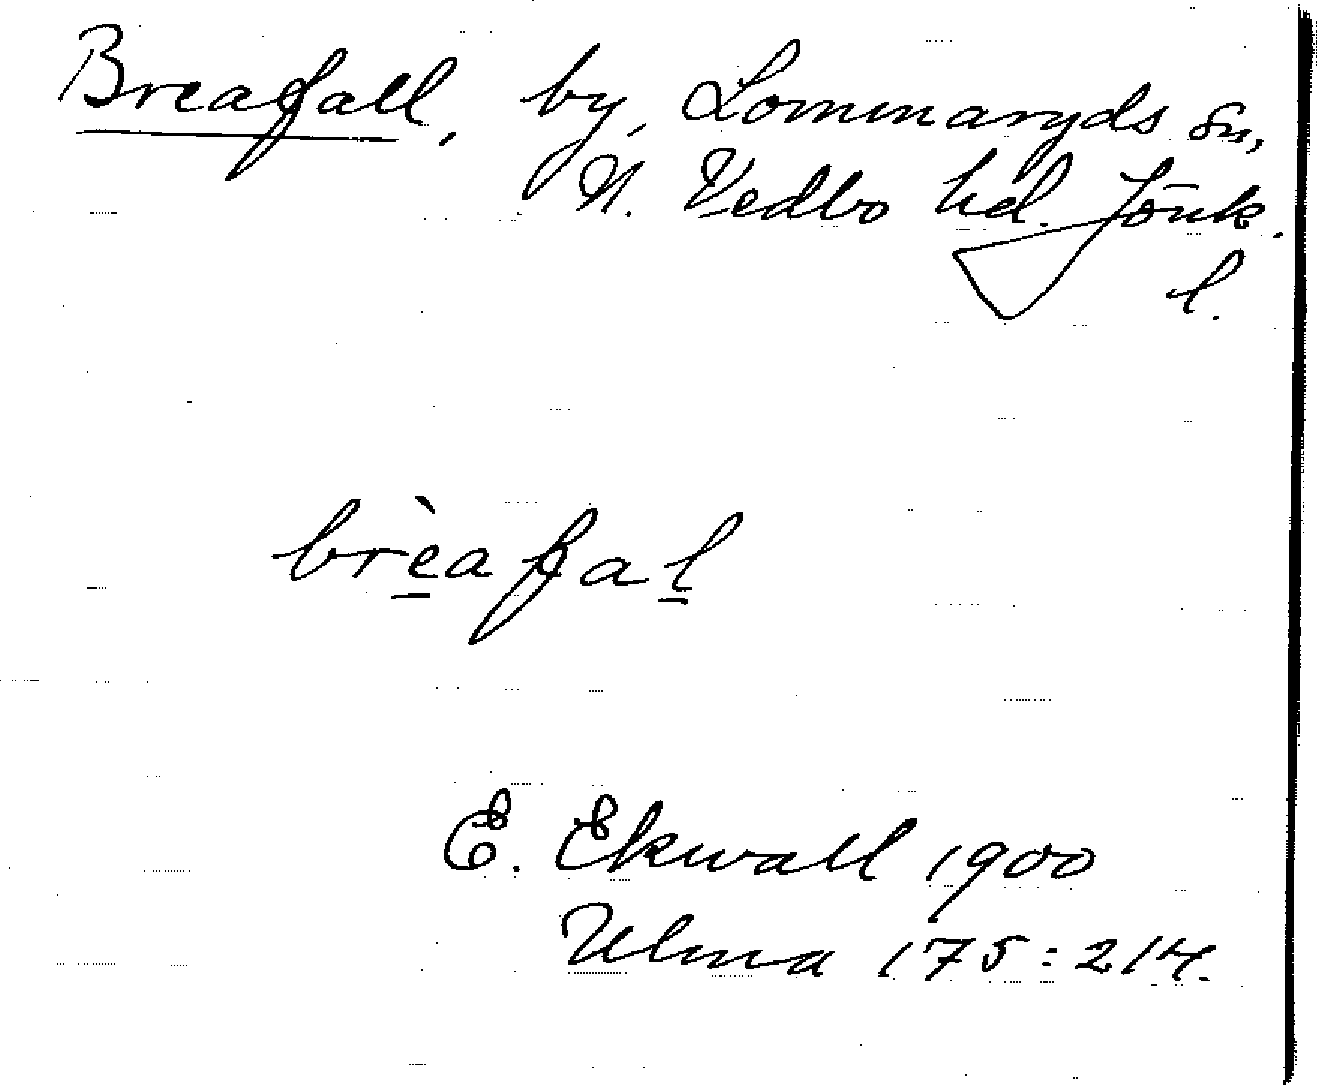 Breafall, by, Lommaryds sn,
N. Vedbo hd. Jönk.
l.
brèafal
E. Ekwall 1900
Ulma 175:214.